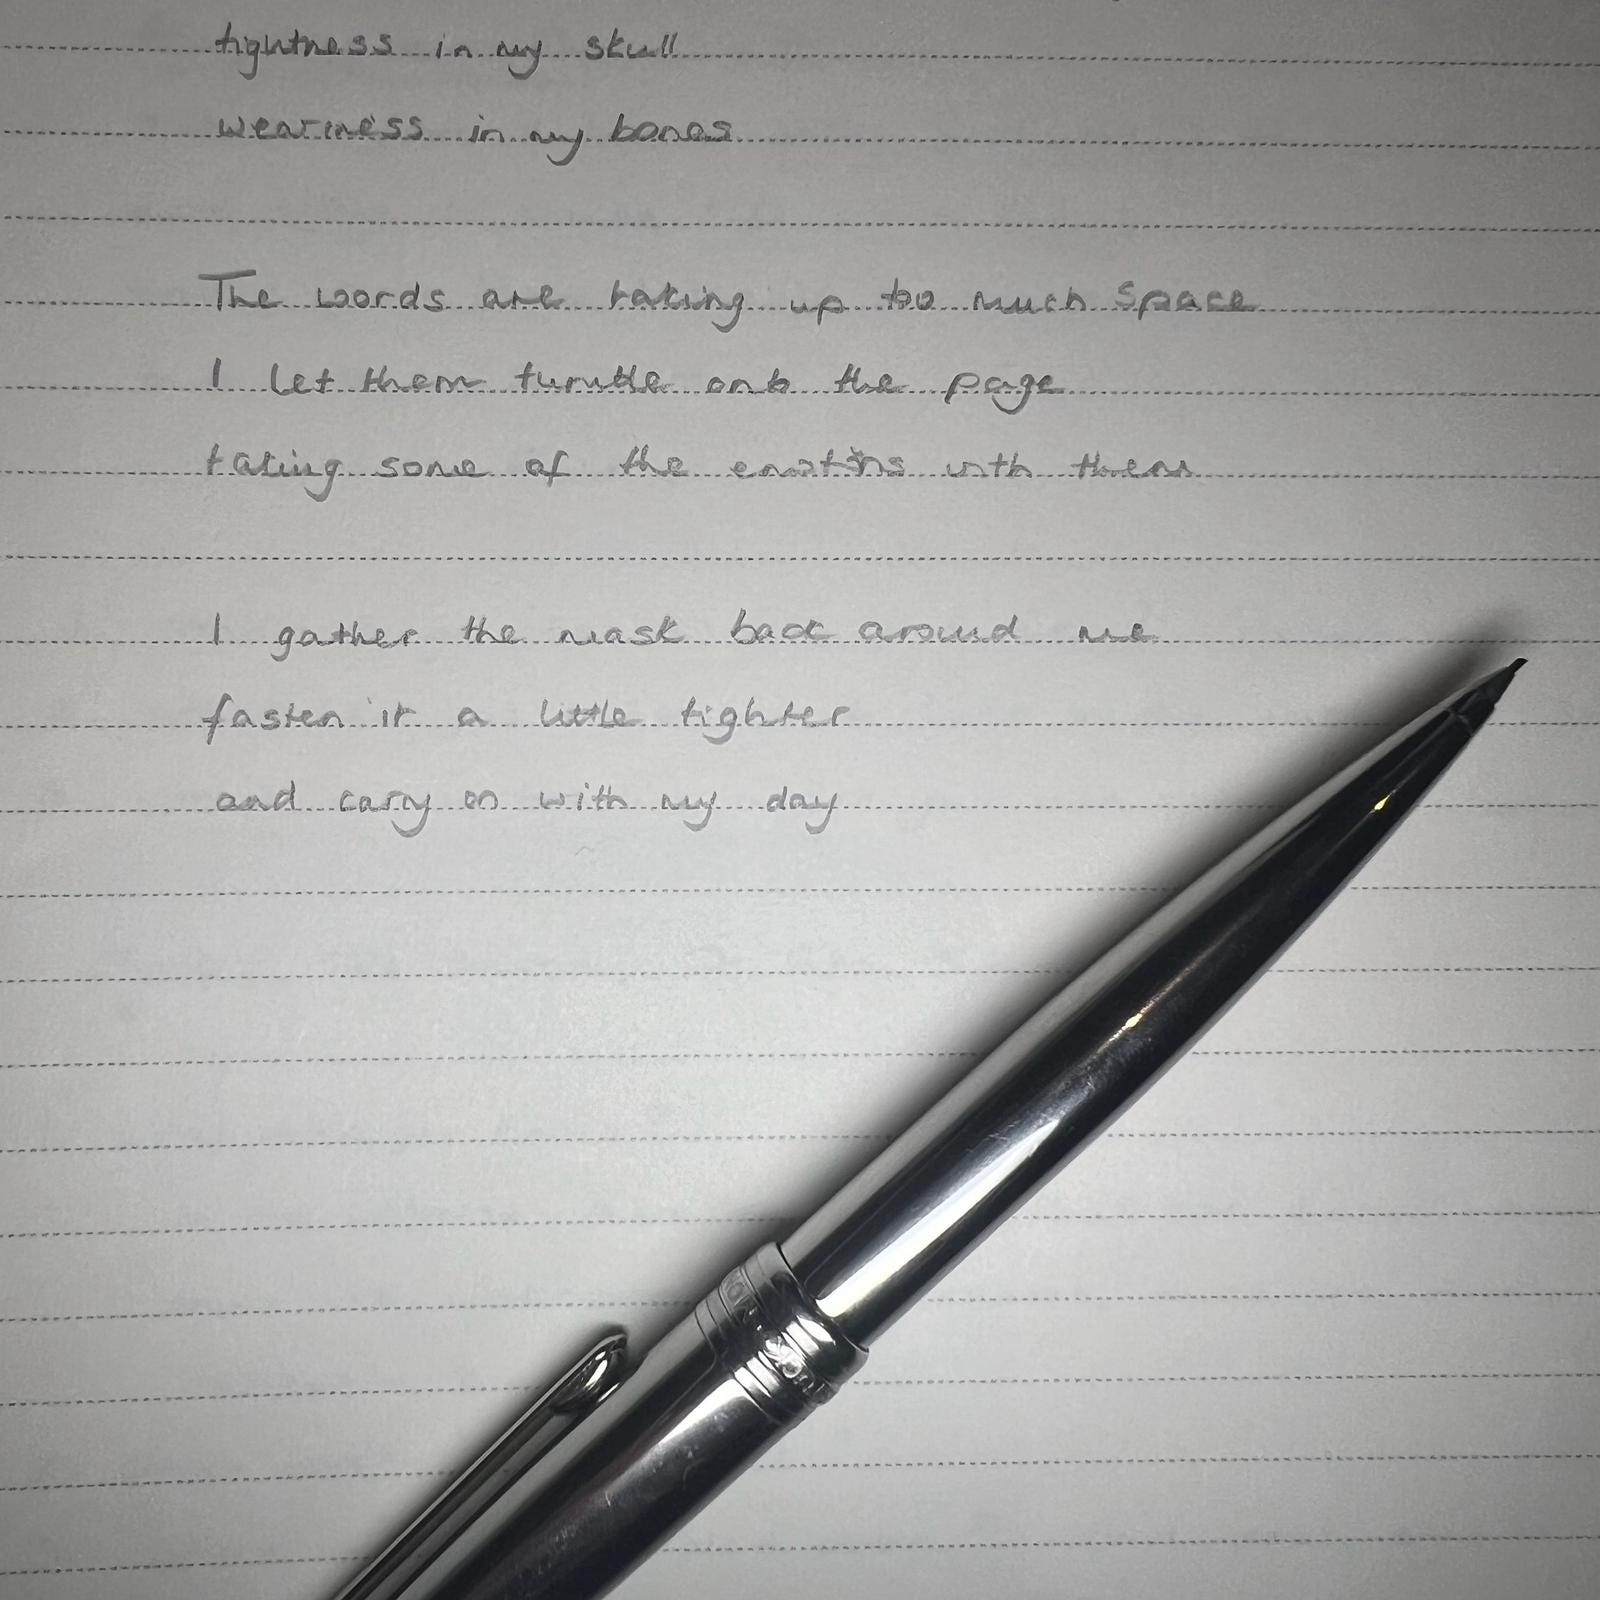 tightness in my skull
weariness in my bones
The words are taking up too much space
I let them tumble onto the page
taking some of the emotions with them
I gather the mask back around me
fasten it a little tighter
and carry on with my day